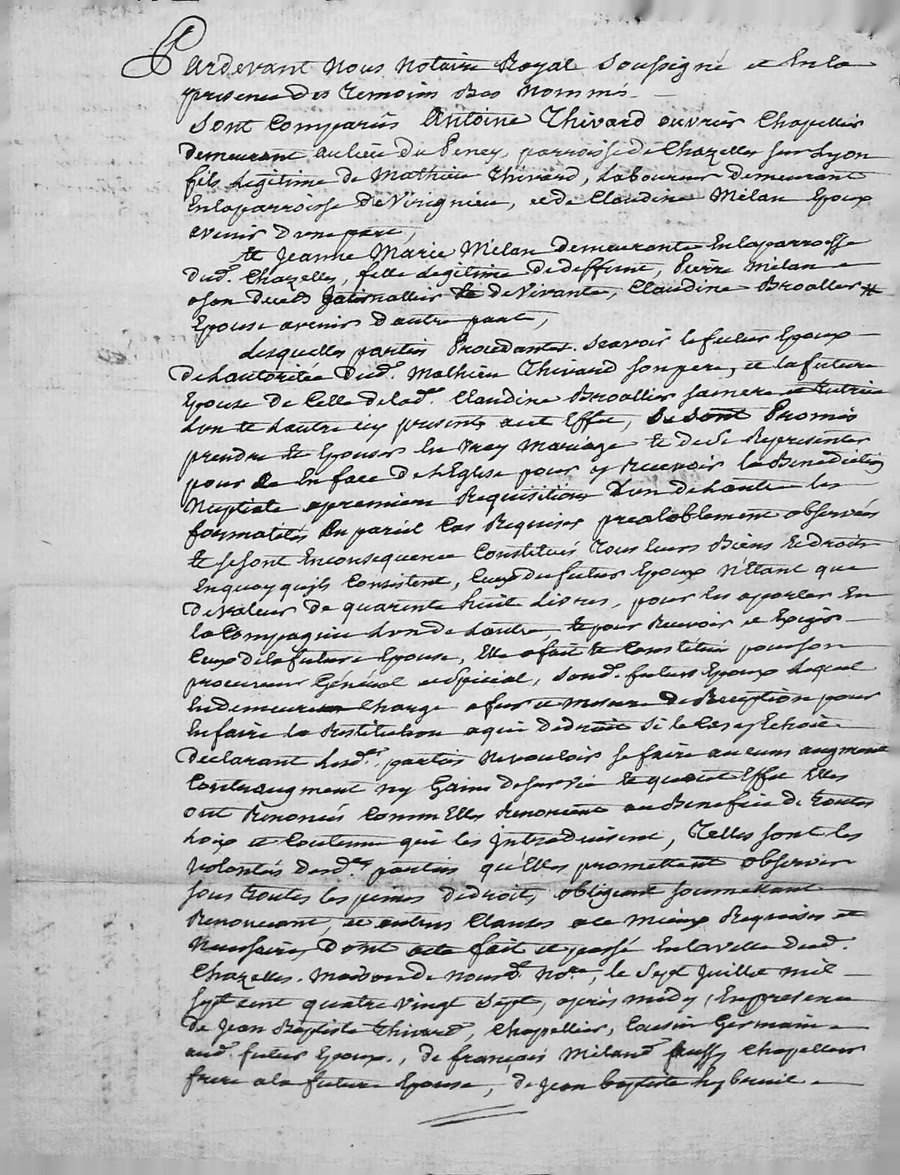 Pardevant nous notaire Royal soussigné et En la
presence des temoins Bas nommés
sont Comparus Antoine Thivard ouvrier Chapellier
demeurant au lieu du Peney, parroisse de Chazelles sur Lyon
fils Legitime de Mathieu Thivard, Laboureur demeurant
En la parroisse de Virignieu, et de Claudine Milan Epoux
avenir d'une part,
Et Jeanne Marie Milan demeurante En la parroisse
dud. Chazelles, fille Legitime de deffunt, Pierre Milan
a son deceds Journallier Et de Vivante, Claudine Broallier
Epouse avenir d'autre part,
Lesquelles parties Procedantes scavoir le futur Epoux
de Lautoritée dud. Mathieu Thivard son pere, et la future
Epouse de Celle de lad. Claudine Broallier sa mere et tutrice
Lun et Lautre icy presents a cet Effet, se sont Promis
prendre et Epouser En Vray Mariage Et de se Representer
pour En face de L'Eglise pour y Recevoir la Benediction
Nuptiale a premiere Requisition L'un de Lautre les
formalités En pareil Cas Requises prealablement observées
Et se sont En consequence Constitués tous leurs Biens Et droits
En quoy qu'ils Consistent, Ceux du futur Epoux N'Etant que
de valeur de quarente huit Livres, pour les aporter En
la Compagnie Lun de Lautre Et pour Recevoir et Exiger
Ceux de la future Epouse, Elle a fait Et Constitué pour son
procureur Général et special, sond. futur Epoux Lequel
En demeurera Chargé a fur et mesure de Reception pour
En faire la Restitution a qui de droit si le Cas y Echoit
declarant Lesd. parties ne vouloir se faire aucuns augment
Contraugment ny Gains de survie Et qua cet Effet Elles
ont Renoncés Comm'Elles Renoncent au Benefice de toutes
Loix et Coutume qui les Introduisent, Telles sont les
Volontés desd. parties qu'Elles promettent observer
sous toutes les peines de droit, obligeant soumettant
Renoncant, et autres Clauses a ce mieux Requises et
Necessaires, Dont acte fait et passé En la ville dud.
Chazelles. Maison de nousd. Nore, le Sept Juillet mil
sept cent quatre vingt sept, après midy, En presence
de Jean Baptiste Thivard, Chapellier, Cousin Germain
aud. futur Epoux, de françois Miland aussy Chapellier
frere a la future Epouse, de Jean baptiste